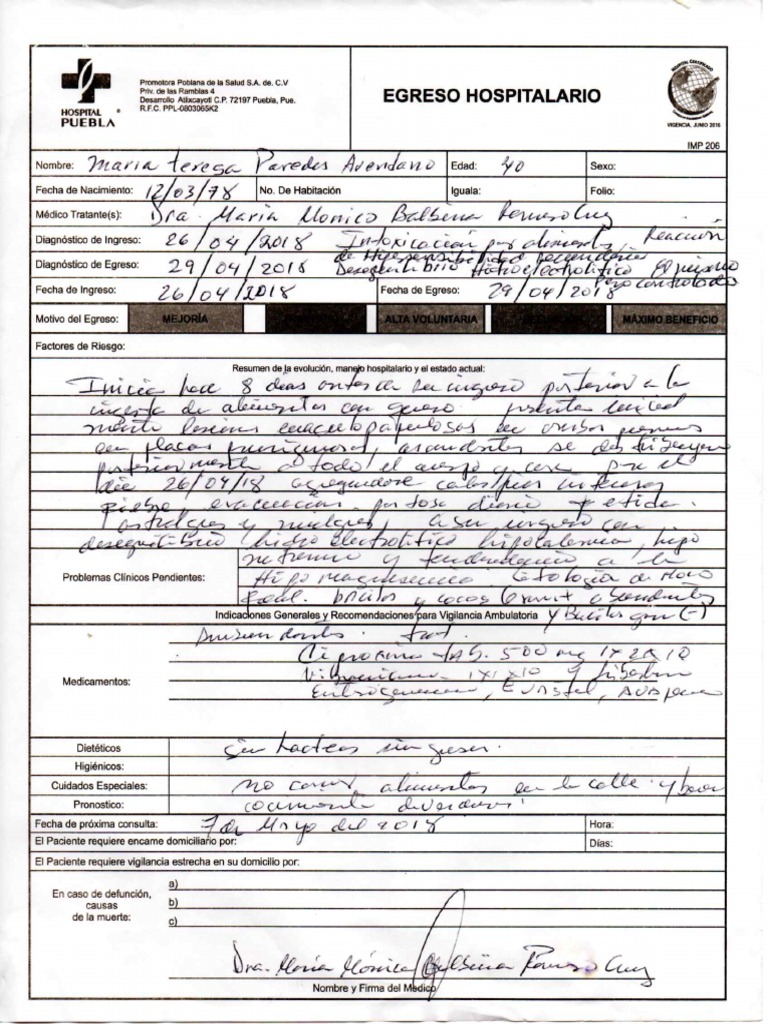 HOSPITAL
PUEBLA
Promotora Poblana de la Salud S.A. de. C.V
Priv. de las Ramblas 4
Desarrollo Atlixcayotl C.P. 72197 Puebla, Pue.
R.F.C. PPL-0803065K2
EGRESO HOSPITALARIO
HOSPITAL CERTIFICADO
VIGENCIA, JUNIO 2016
IMP 206
Nombre: Maria teresa Paredes Avendano Edad: 40 Sexo:
Fecha de Nacimiento: 12/03/78 No. De Habitación Iguala: Folio:
Médico Tratante(s): Dra. María Monico Balbina Romero Cruz
Diagnóstico de Ingreso: 26/04/2018 Intoxicación por alimentos, Reacción
de Hipersensibilidad secundaria
Diagnóstico de Egreso: 29/04/2018 Desequilibrio Hidroelectrolitico El mismo
pero controlados
Fecha de Ingreso: 26/04/2018 Fecha de Egreso: 29/04/2018
Motivo del Egreso: MEJORÍA ALTA VOLUNTARIA MÁXIMO BENEFICIO
Factores de Riesgo:
Resumen de la evolución, manejo hospitalario y el estado actual:
Inicia hace 8 dias antes de su ingreso posterior a la
ingesta de alimentos con queso. presenta
lesiones maculopapulosas en ambas piernas
con placas pruriginosas, abundantes se distribuyen
posteriormente a todo el cuerpo y cara por el
dia 26/04/18 agregandose
fiebre, evacuacion
y a su ingreso con
desequilibrio hidroelectrolitico hipocalemia, hipo
natremia y tendencia a la
Problemas Clínicos Pendientes: Hipomagnesemia. Citología de Moco
Fecal. bacilos y cocos Gramt abundantes
Indicaciones Generales y Recomendaciones para Vigilancia Ambulatoria y Bacilos gram (-)
Medicamentos:
TAB. 500 mg 1X2X10
1X1X10 y
Dietéticos sin lacteos sin grasas.
Higiénicos:
Cuidados Especiales: no comer alimentos en la calle y
Pronostico: de verduras.
Fecha de próxima consulta: 7 de Mayo del 2018 Hora:
El Paciente requiere encame domiciliario por: Días:
El Paciente requiere vigilancia estrecha en su domicilio por:
En caso de defunción,
causas
de la muerte:
a)
b)
c)
Dra. María Mónica Balbina Romero Cruz
Nombre y Firma del Médico